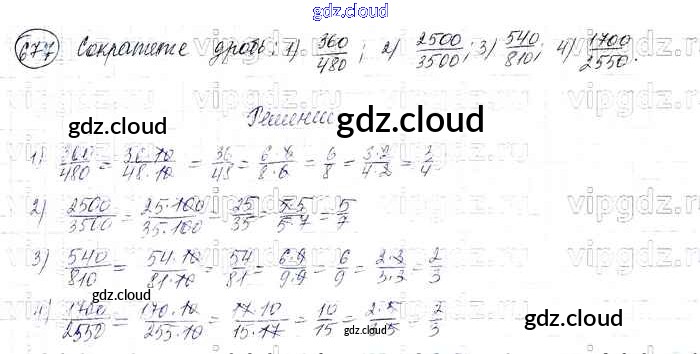 gdz.cloud
677 Сократите дробь: 1) 360/480; 2) 2500/3500; 3) 540/810; 4) 1700/2550.
Решение
gdz.cloud gdz.cloud
1) 360/480 = 36·10/48·10 = 36/48 = 6·6/8·6 = 6/8 = 3·2/4·2 = 3/4
2) 2500/3500 = 25·100/35·100 = 25/35 = 5·5/5·7 = 5/7
3) 540/810 = 54·10/81·10 = 54/81 = 6·9/9·9 = 6/9 = 2·3/3·3 = 2/3
gdz.cloud
4) 1700/2550 = 170·10/255·10 = 17·10/15·17 = 10/15 = 2·5/3·5 = 2/3
gdz.cloud gdz.cloud